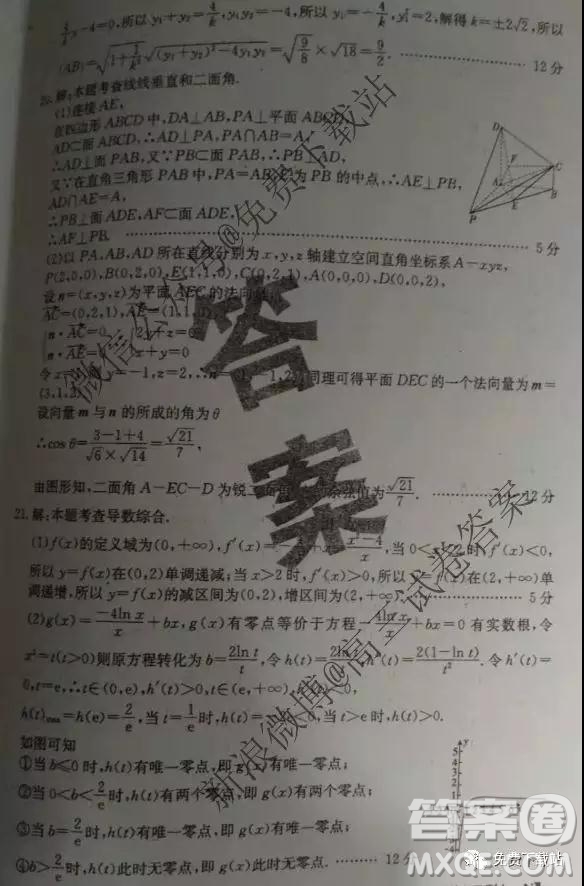 y-4=0,所以 y₁+y₂=4/k,y₁y₂=-4,所以 y₁=-4/k,y₁²=2,解得 k=±2√2,所以
|AB|=√(1+1/k²)√((y₁+y₂)²-4y₁y₂)=√(9/8)×√18=9/2. 12 分
20.解:本题考查线线垂直和二面角.
(1)连接 AE,
在四边形 ABCD 中,DA⊥AB,PA⊥平面 ABCD,
AD⊂面 ABCD,∴AD⊥PA,PA∩AB=A,
∴AD⊥面 PAB,又∵PB⊂面 PAB,∴PB⊥AD,
又∵在直角三角形 PAB 中,PA=AB,E 为 PB 的中点,∴AE⊥PB,
AD∩AE=A,
∴PB⊥面 ADE,AF⊂面 ADE,
∴AF⊥PB. 5 分
D
F
C
A
B
E
P
(2)以 PA,AB,AD 所在直线分别为 x,y,z 轴建立空间直角坐标系 A-xyz,
P(2,0,0),B(0,2,0),E(1,1,0),C(0,2,1),A(0,0,0),D(0,0,2),
设 n=(x,y,z)为平面 AEC 的法向量,
AC=(0,2,1),AE=(1,1,0)
n·AC=0 2y+z=0
n·AE=0 x+y=0
令 =-1,z=2,∴ -1,2)同理可得平面 DEC 的一个法向量为 m=
(3,1,2)
设向量 m 与 n 的所成的角为 θ
∴cos θ=(3-1+4)/(√6×√14)=√21/7,
由图形知,二面角 A-EC-D 为锐二面角 值为 √21/7. 12 分
21.解:本题考查导数综合.
(1)f(x)的定义域为(0,+∞),f′(x)= x²-4/x,当 0<x<2 时,f′(x)<0,
所以 y=f(x)在(0,2)单调递减;当 x>2 时,f′(x)>0,所以 y=f(x)在(2,+∞)单
调递增,所以 y=f(x)的减区间为(0,2),增区间为(2,+∞). 5 分
(2)g(x)=(-4ln x)/x+bx,g(x)有零点等价于方程 -4ln x/x+bx=0 有实数根,令
x²=t(t>0)则原方程转化为 b=2ln t/t,令 h(t)=2ln t/t,h′(t)=2(1-ln t)/t².令 h′(t)=
0,t=e,∴t∈(0,e),h′(t)>0,t∈(e,+∞), <0,
h(t)max=h(e)=2/e,当 t=1/e 时,h(t)= <0,当 t>e 时,h(t)>0.
如图可知
①当 b≤0 时,h(t)有唯一零点,即 g(x)有唯一零点;
②当 0<b<2/e 时,h(t)有两个零点,即 g(x)有两个零点;
③当 b=2/e 时,h(t)有唯一零点,即 g(x)有唯一零点;
④b>2/e 时,h(t)此时无零点,即 g(x)此时无零点. 12 分
y
5
4
3
2
答案
微信公众号@免费下载站
新浪微博@高三试卷答案
答案圈
免费下载站